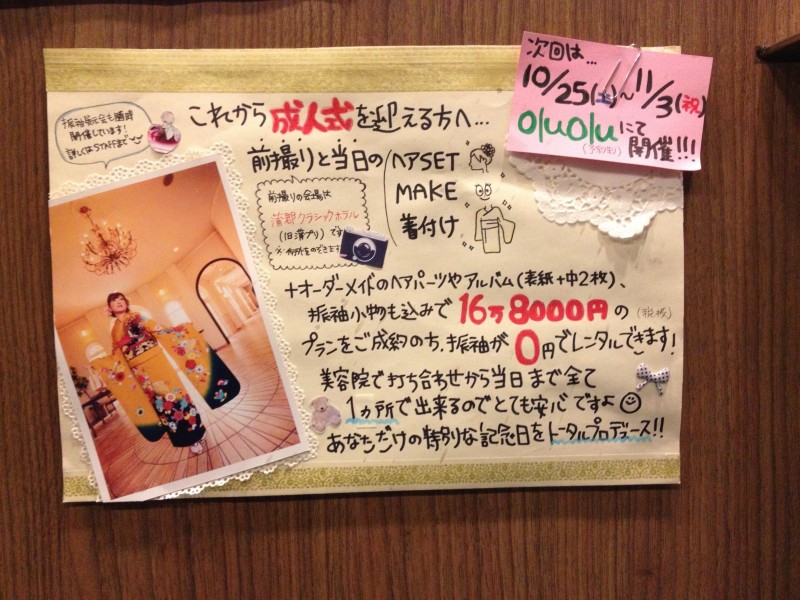 次回は...
10/25(土)~11/3(祝)
oluoluにて
開催!!!
振袖展示会も随時
開催しています!
詳しくはSTAFFまで
これから成人式を迎える方へ...
前撮りと当日の
ヘアSET
MAKE
着付け
前撮りの会場は
蒲郡クラシックホテル
(旧蒲プリ)です
+オーダーメイドのヘアパーツやアルバム(表紙+中2枚)、
振袖小物も込みで16万8000円の(税抜)
プランをご成約のち、振袖が0円でレンタルできます!
美容院で打ち合わせから当日まで全て
1ヵ所で出来るのでとても安心ですよ
あなただけの特別な記念日をトータルプロデュース!!